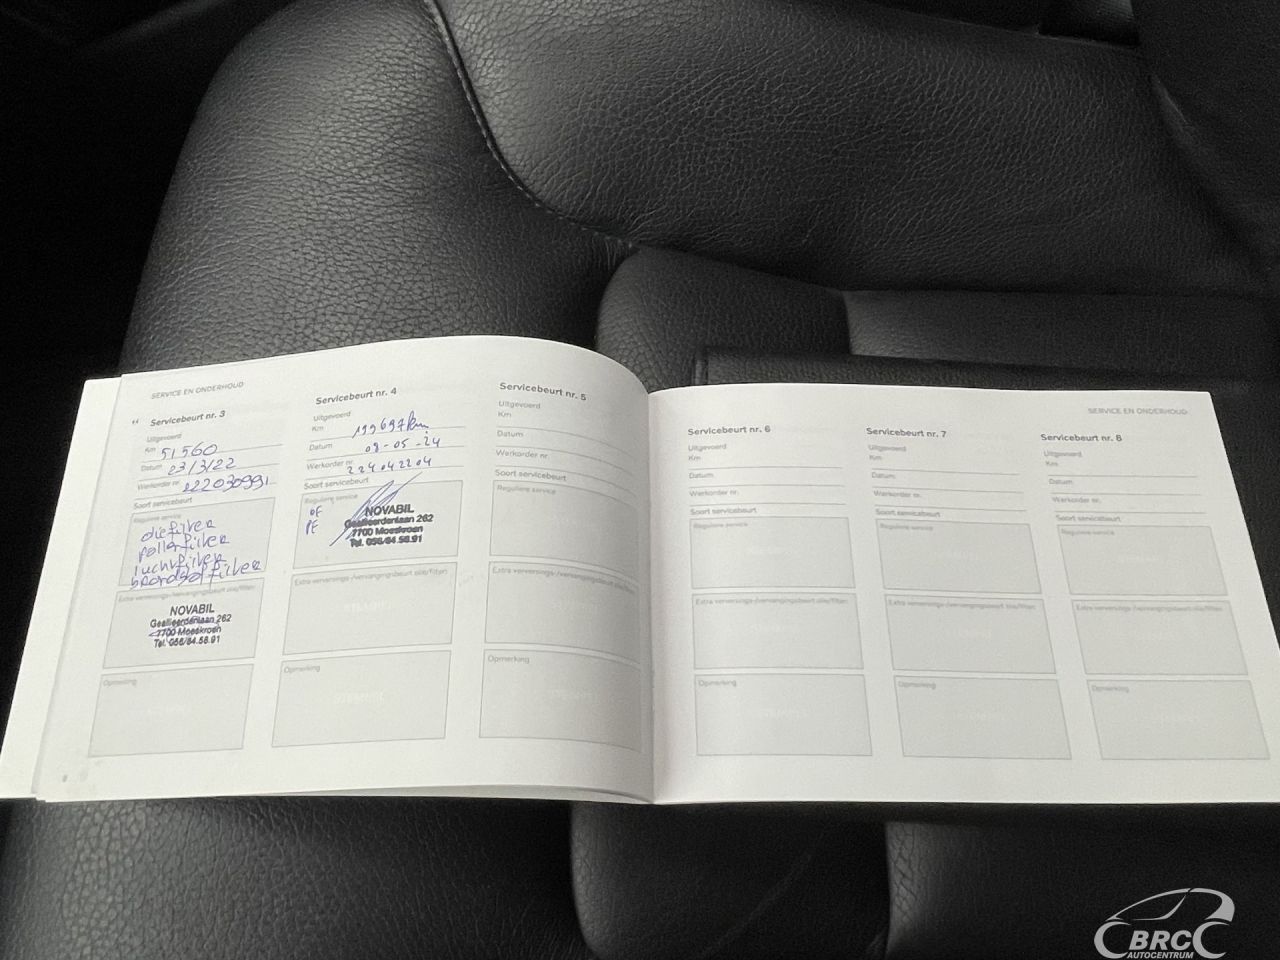 SERVICE EN ONDERHOUD
Servicebeurt nr. 3
Uitgevoerd
Km 51560
Datum 23/3/22
Werkorder nr. 222030991
Soort servicebeurt
Reguliere service
oliefilter
pollenfilter
luchtfilter
brandstoffilter
Extra verversings-/vervangingsbeurt olie/filter:
NOVABIL
Geallieerdenlaan 262
7700 Moeskroen
Tel. 056/84.58.91
Opmerking
Servicebeurt nr. 4
Uitgevoerd
Km 199697km
Datum 09-05-24
Werkorder nr. 224042204
Soort servicebeurt
Reguliere service
OF
PF
NOVABIL
Geallieerdenlaan 262
7700 Moeskroen
Tel. 056/84.58.91
Extra verversings-/vervangingsbeurt olie/filter:
Opmerking
Servicebeurt nr. 5
Uitgevoerd
Km
Datum
Werkorder nr.
Soort servicebeurt
Reguliere service
Extra verversings-/vervangingsbeurt olie/filter:
Opmerking
SERVICE EN ONDERHOUD
Servicebeurt nr. 6
Uitgevoerd
Km
Datum
Werkorder nr.
Soort servicebeurt
Reguliere service
Extra verversings-/vervangingsbeurt olie/filter:
Opmerking
Servicebeurt nr. 7
Uitgevoerd
Km
Datum
Werkorder nr.
Soort servicebeurt
Reguliere service
Extra verversings-/vervangingsbeurt olie/filter:
Opmerking
Servicebeurt nr. 8
Uitgevoerd
Km
Datum
Werkorder nr.
Soort servicebeurt
Reguliere service
Extra verversings-/vervangingsbeurt olie/filter:
Opmerking
BRC
AUTOCENTRUM